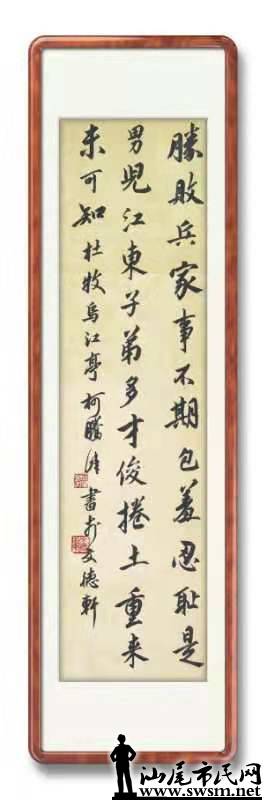 勝敗兵家事不期包羞忍恥是
男兒江東子弟多才俊捲土重来
未可知 杜牧烏江亭 柯 書於文德軒
汕尾市民网
www.swsm.net